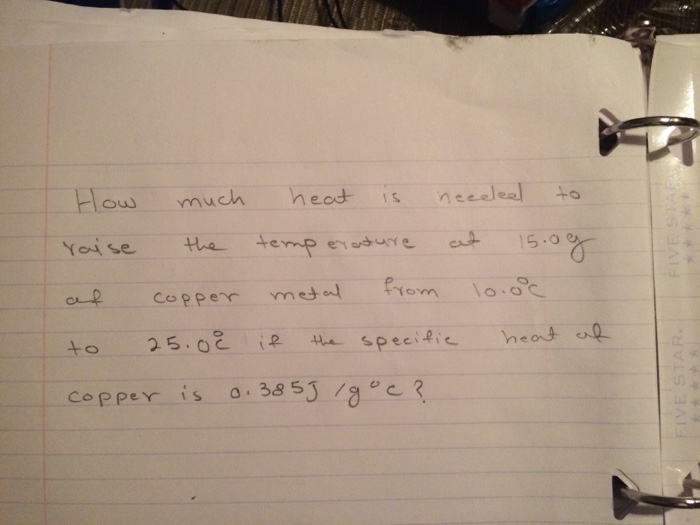 How much heat is needed to
raise the temperature of 15.0g
of copper metal from 10.0°C
to 25.0°C if the specific heat of
copper is 0.385J /g°C?
FIVE STAR.
FIVE STAR.